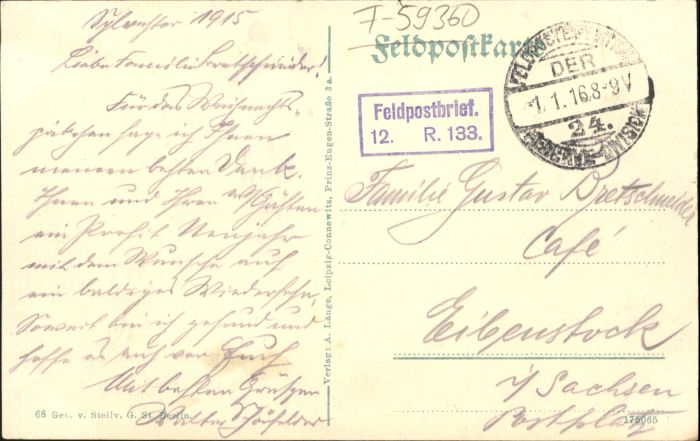 Sylvester 1915
Liebe Familie Bretschneider!
Für das Weihnachts-
päckchen sage ich Ihnen
meinen besten Dank.
Ihnen und Ihren w/ Gästen
ein Prosit Neujahr
mit dem Wunsche auf
ein baldiges Wiedersehn.
Soweit bin ich gesund und
hoffe es auch von Euch
Mit besten Grüssen
Walter
68 Gen. v. Stellv. G. St. Berlin.
Verlag: A. Lange, Leipzig-Connewitz, Prinz-Eugen-Straße 3a.
F-59360
Feldpostkarte
Feldpostbrief.
12. R. 133.
DER
1.1.16.8-9V
24.
RESERVE-DIVISION
Familie Gustav Bretschneider
Café
Eibenstock
i/Sachsen
Postplatz
175065